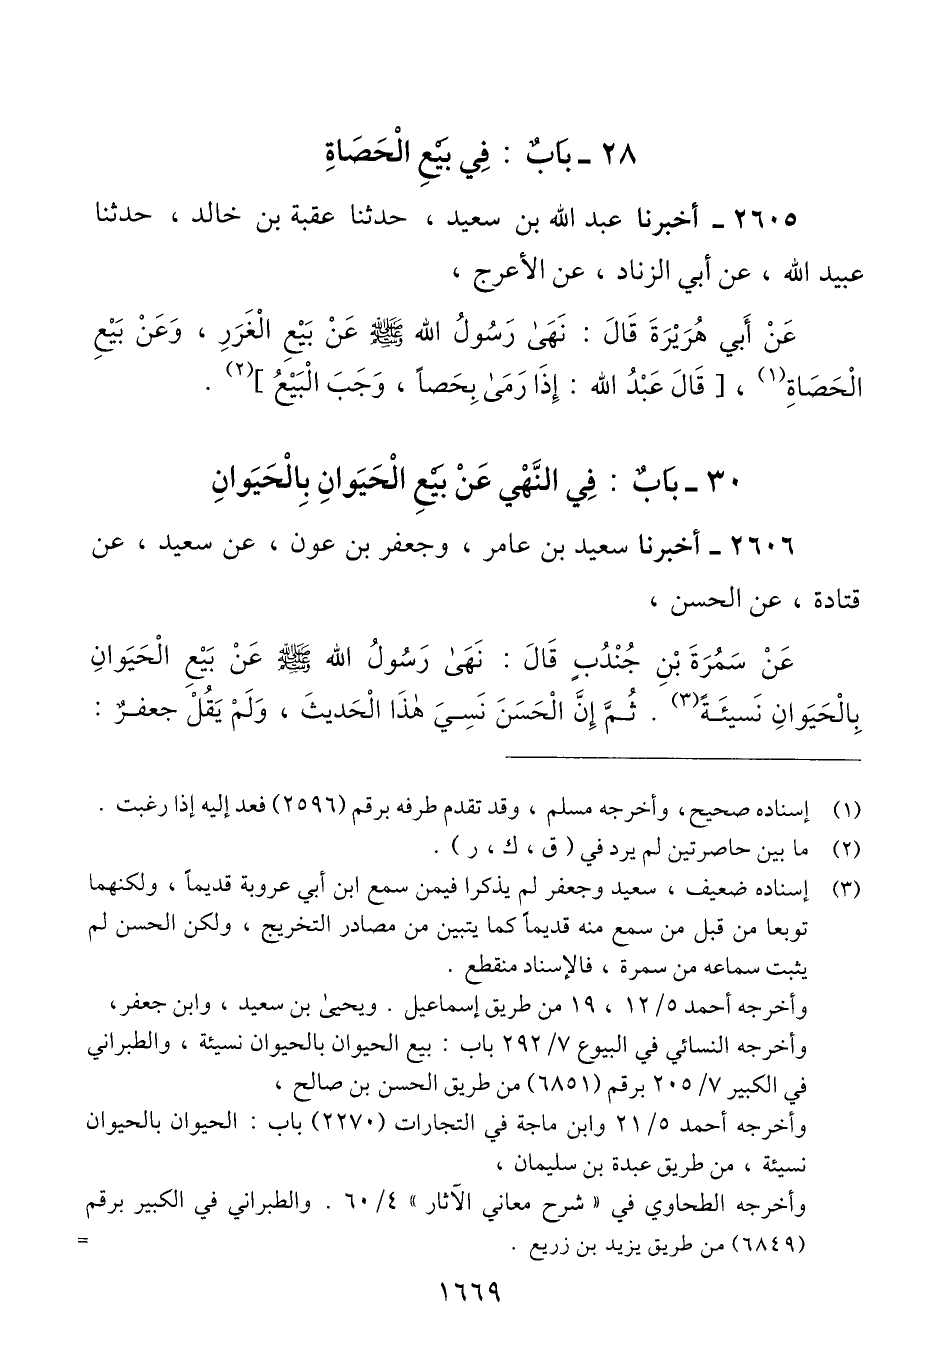 ٢٨ ـ بَابٌ : فِي بَيْعِ الْحَصَاةِ
٢٦٠٥ ـ أخبرنا عبد الله بن سعيد ، حدثنا عقبة بن خالد ، حدثنا
عبيد الله ، عن أبي الزناد ، عن الأعرج ،
عَنْ أَبي هُرَيْرَةَ قَالَ : نَهَىٰ رَسُولُ الله ﷺ عَنْ بَيْعِ الْغَرَرِ ، وَعَنْ بَيْعِ
الْحَصَاةِ(١) ، [ قَالَ عَبْدُ الله : إِذَا رَمَىٰ بِحَصاً ، وَجَبَ الْبَيْعُ ](٢) .
٣٠ ـ بَابٌ : فِي النَّهْي عَنْ بَيْعِ الْحَيَوانِ بِالْحَيَوانِ
٢٦٠٦ ـ أخبرنا سعيد بن عامر ، وجعفر بن عون ، عن سعيد ، عن
قتادة ، عن الحسن ،
عَنْ سَمُرَةَ بْنِ جُنْدُبٍ قَالَ : نَهَىٰ رَسُولُ الله ﷺ عَنْ بَيْعِ الْحَيَوانِ
بِالْحَيَوانِ نَسيئَةً(٣) . ثُمَّ إِنَّ الْحَسَنَ نَسِيَ هٰذَا الْحَديثَ ، وَلَمْ يَقُلْ جعفرٌ :
(١) إسناده صحيح، وأخرجه مسلم ، وقد تقدم طرفه برقم (٢٥٩٦) فعد إليه إذا رغبت .
(٢) ما بين حاصرتين لم يرد في ( ق ، ك ، ر ) .
(٣) إسناده ضعيف ، سعيد وجعفر لم يذكرا فيمن سمع ابن أبي عروبة قديماً ، ولكنهما
توبعا من قبل من سمع منه قديماً كما يتبين من مصادر التخريج ، ولكن الحسن لم
يثبت سماعه من سمرة ، فالإسناد منقطع .
وأخرجه أحمد ٥/ ١٢ ، ١٩ من طريق إسماعيل . ويحيىٰ بن سعيد ، وابن جعفر،
وأخرجه النسائي في البيوع ٧/ ٢٩٢ باب : بيع الحيوان بالحيوان نسيئة ، والطبراني
في الكبير ٧/ ٢٠٥ برقم (٦٨٥١) من طريق الحسن بن صالح ،
وأخرجه أحمد ٥/ ٢١ وابن ماجة في التجارات (٢٢٧٠) باب : الحيوان بالحيوان
نسيئة ، من طريق عبدة بن سليمان ،
وأخرجه الطحاوي في « شرح معاني الآثار » ٤/ ٦٠ . والطبراني في الكبير برقم
(٦٨٤٩) من طريق يزيد بن زريع . =
١٦٦٩